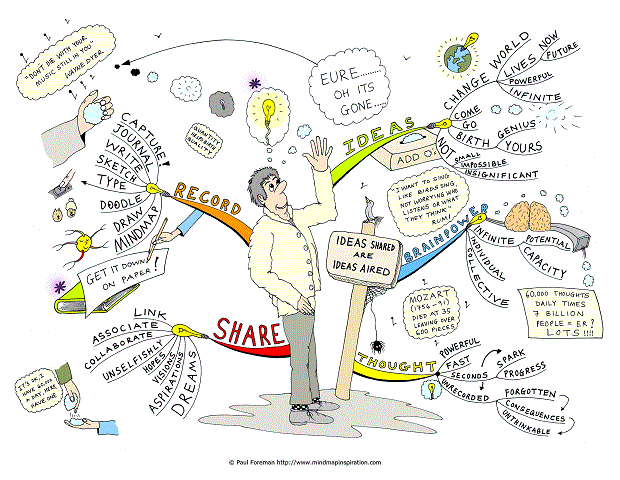 "DON'T DIE WITH YOUR
MUSIC STILL IN YOU"
WAYNE DYER
EURE........
OH ITS
GONE....
QUANTITY
INSPIRES
QUALITY
IDEAS
CHANGE WORLD
LIVES
NOW
FUTURE
POWERFUL
INFINITE
COME
GO
BIRTH
GENIUS
YOURS
NOT
SMALL
IMPOSSIBLE
INSIGNIFICANT
RECORD
CAPTURE
JOURNAL
WRITE
SKETCH
TYPE
DOODLE
DRAW
MINDMAP
GET IT DOWN
ON PAPER!
I WANT TO SING
LIKE BIRDS SING,
NOT WORRYING WHO
LISTENS OR WHAT
THEY THINK -
RUMI
IDEAS SHARED
ARE
IDEAS AIRED
BRAINPOWER
INFINITE
POTENTIAL
CAPACITY
INDIVIDUAL
COLLECTIVE
60,000 THOUGHTS
DAILY TIMES
7 BILLION
PEOPLE = ER?
LOTS !!!!
MOZART
(1756-91)
DIED AT 35
LEAVING OVER
600 PIECES
SHARE
LINK
ASSOCIATE
COLLABORATE
UNSELFISHLY
HOPES
VISIONS
ASPIRATIONS
DREAMS
THOUGHT
POWERFUL
FAST
SECONDS
SPARK
PROGRESS
UNRECORDED
FORGOTTEN
CONSEQUENCES
UNTHINKABLE
IT'S OK, I
HAVE 60,000
A DAY, HERE
HAVE ONE
© Paul Foreman http://www.mindmapinspiration.com